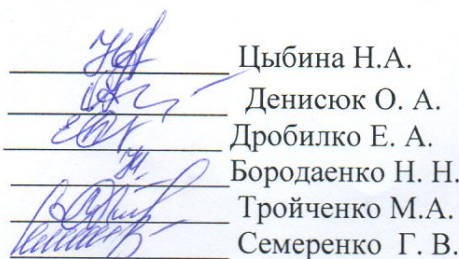 Цыбина Н.А.
Денисюк О. А.
Дробилко Е. А.
Бородаенко Н. Н.
Тройченко М.А.
Семеренко Г. В.